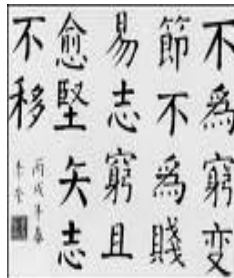 不為窮变
節不為賤
易志窮且
愈堅矢志
不移
丙戌年春